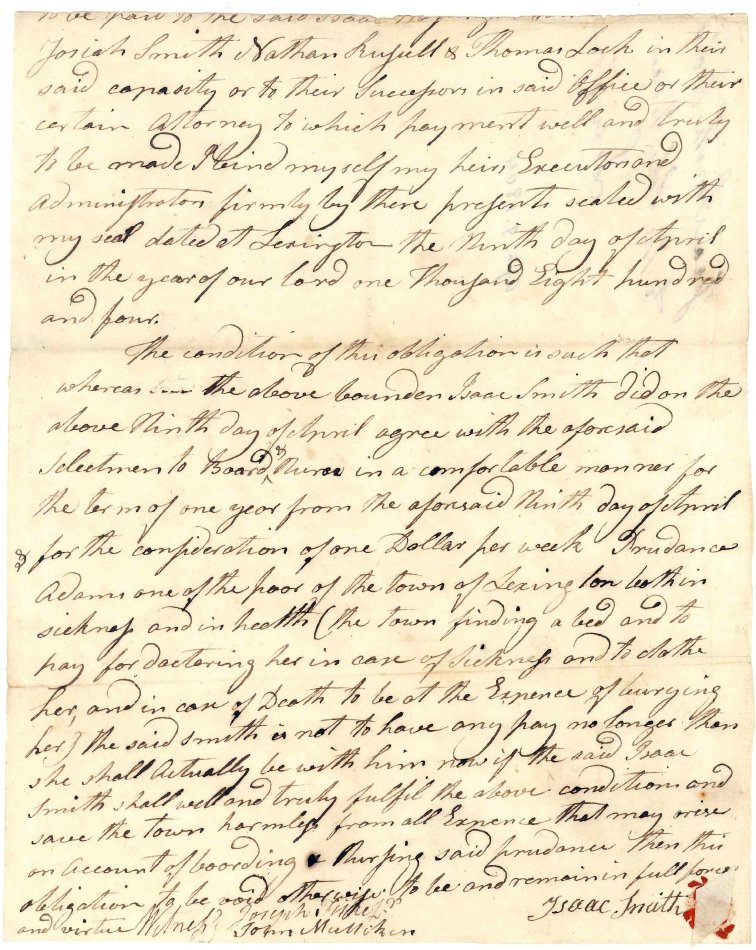 to be paid to the said Isaac
Josiah Smith Nathan Russell & Thomas Lock in their
said capasity or to their Successors in said Office or their
certain Attorney to which payment well and truly
to be made I bind myself my heirs Executors and
Administrators firmly by these presents sealed with
my seal dated at Lexington the Ninth day of April
in the year of our lord one Thousand Eight hundred
and four.
The condition of this obligation is such that
whereas the above bounden Isaac Smith did on the
above Ninth day of April agree with the aforesaid
Selectmen to Board & Nurse in a comfortable manner for
the term of one year from the aforesaid Ninth day of April
& for the consideration of one Dollar per week Prudance
Adams one of the poor of the town of Lexington both in
sickness and in health (the town finding a bed and to
pay for doctering her in case of Sickness and to clothe
her, and in case of Death to be at the Expence of burying
her) the said Smith is not to have any pay no longer then
she shall Actually be with him now if the said Isaac
Smith shall well and truly fulfil the above condition and
save the town harmless from all Expence that may arise
on Account of boording & Nursing said prudance then this
obligation to be void otherwise to be and remain in full force
and virtue Witness Joseph
John Mulliken
Isaac Smith